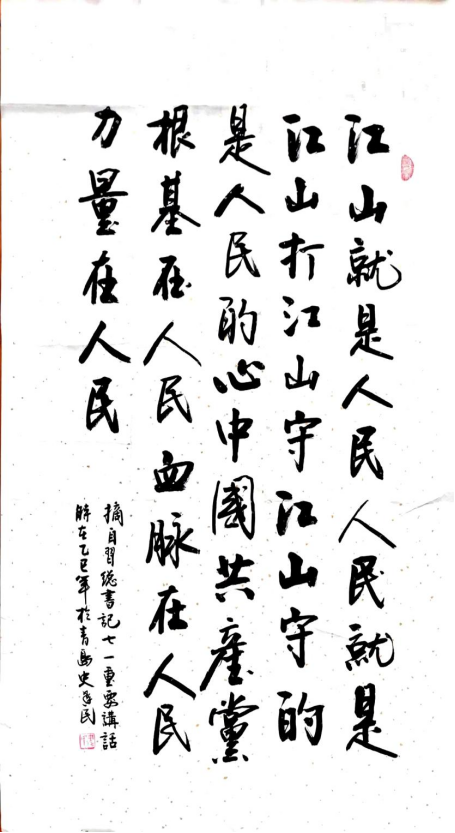 江山就是人民人民就是
江山打江山守江山守的
是人民的心中國共產黨
根基在人民血脉在人民
力量在人民
摘自習總書記七一重要講話
時在乙巳年於青島史民